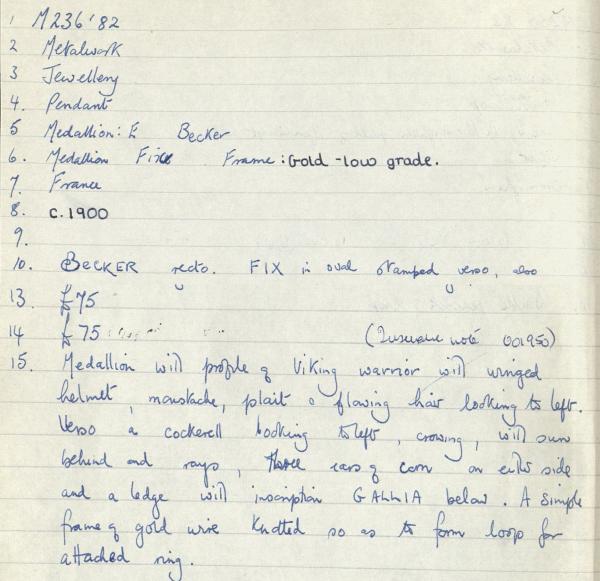 1 M236'82
2 Metalwork
3 Jewellery
4. Pendant
5 Medallion: E Becker
6. Medallion Fix Frame: Gold - low grade.
7. France
8. c.1900
9.
10. BECKER recto. FIX in oval stamped verso, also
13 £75
14 £75 (Insurance note 001950)
15. Medallion with profile of Viking warrior with winged
helmet, moustache, plait & flowing hair looking to left.
Verso a cockerell looking to left, crowing, with sun
behind and rays, three ears of corn on either side
and a ledge with inscription GALLIA below. A simple
frame of gold wire knotted so as to form loop for
attached ring.